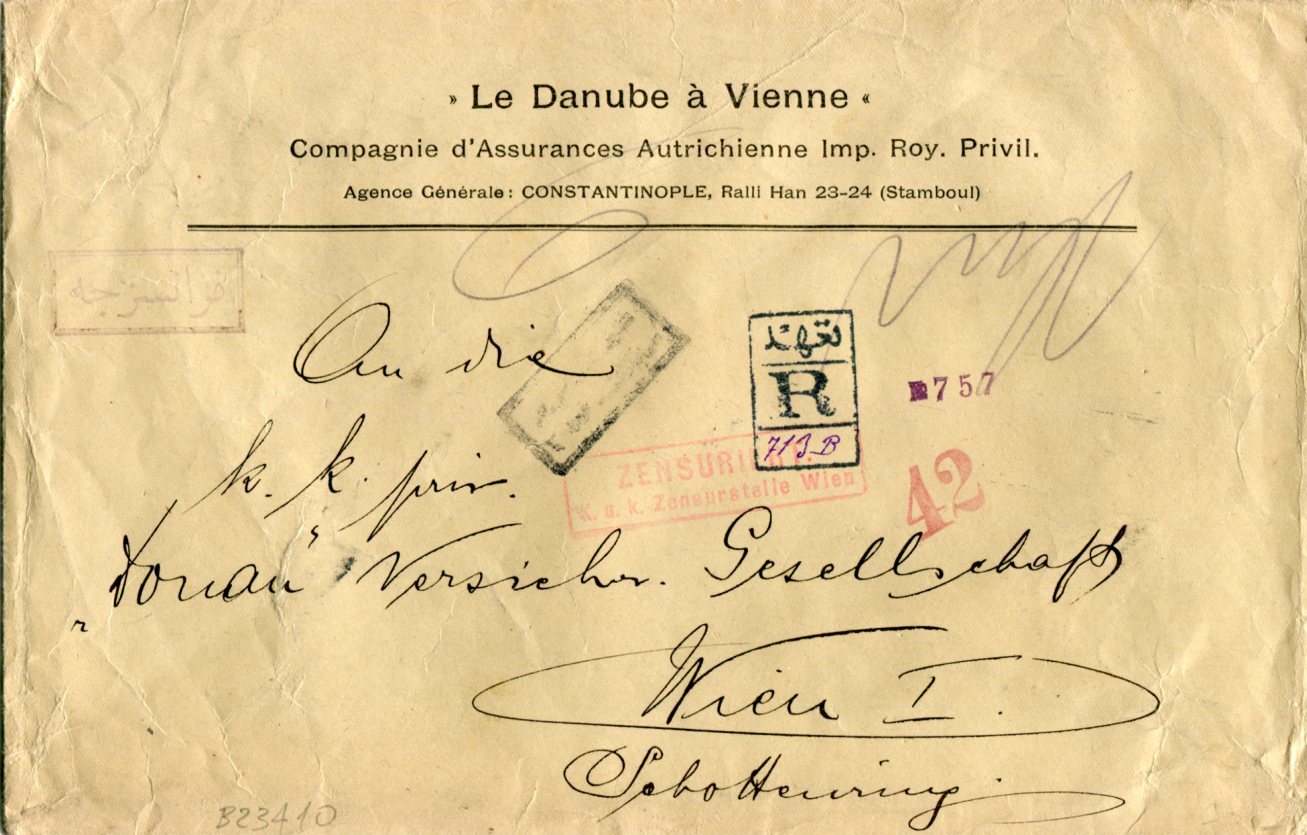 » Le Danube à Vienne «
Compagnie d'Assurances Autrichienne Imp. Roy. Privil.
Agence Générale: CONSTANTINOPLE, Ralli Han 23-24 (Stamboul)
فرانسزجه
An die
تعهد
R
713 B
№ 757
k. k. priv.
ZENSURIERT
K. u. k. Zensurstelle Wien
42
„Donau“ Versichr. Gesellschaft
Wien I.
Schottenring.
B23410